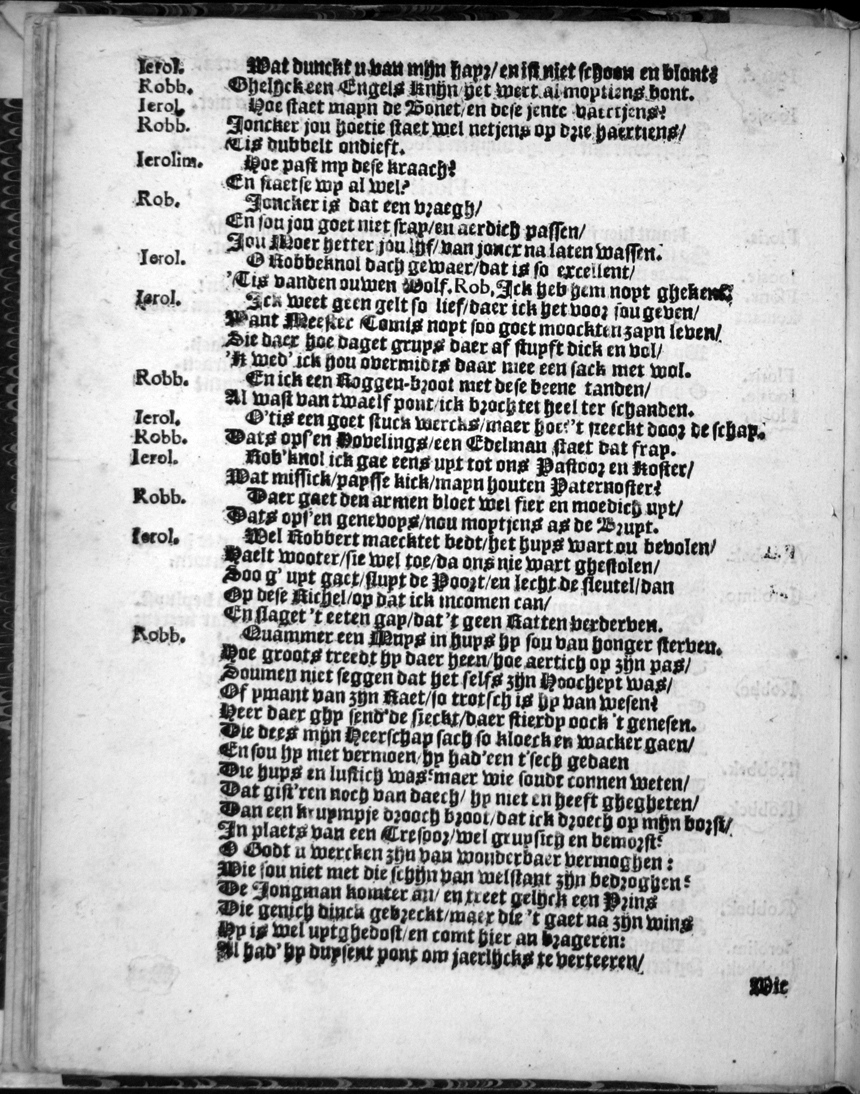 Ierol. Wat dunckt u van mijn hayr/en ist niet schoon en blont?
Robb. Ghelyck een Engels knijn het wert al moytiens bont.
Ierol. Hoe staet mayn de Bonet/en dese jente vaertjens?
Robb. Joncker jou hoetie staet wel netjens op drie haertiens/
Tis dubbelt ondieft.
Ierolim. Hoe past my dese kraach?
En staetse wy al wel?
Rob. Joncker is dat een vraegh/
En sou jou goet niet stap/en aerdich passen/
Jou Moer hetter jou lyf/van joncx na laten wassen.
Ierol. O Robbeknol dach gewaer/dat is so excellent/
'Tis vanden ouwen Wolf. Rob. Ick heb hem noyt ghekent
Ierol. Ick weet geen gelt so lief/daer ick het voor sou geven/
Want Meester Comis noyt soo goet moockten zayn leven/
Sie daer hoe daget gruys daer af stuyft dick en vol/
'K wed' ick hou overmidts daar mee een sack met wol.
Robb. En ick een Roggen-broot met dese beene tanden/
Al wast van twaelf pont/ick brochtet heel ter schanden.
Ierol. O'tis een goet stuck wercks/maer hoe?'t steeckt door de schap.
Robb. Dats ops'en Hovelings/een Edelman staet dat frap.
Ierol. Rob'knol ick gae eens uyt tot ons Pastoor en Koster/
Wat missick/paysse kick/mayn houten Paternoster?
Robb. Daer gaet den armen bloet wel fier en moedich uyt/
Dats ops'en genevoys/nou moytjens as de Bruyt.
Ierol. Wel Robbert maecktet bedt/het huys wart ou bevolen/
Haelt wooter/sie wel toe/da ons nie wart ghestolen/
Soo g' uyt gaet/sluyt de Poort/en lecht de sleutel/dan
Op dese Richel/op dat ick incomen can/
En slaget 't eeten gay/dat 't geen Ratten verderven.
Robb. Quammer een Muys in huys hy sou van honger sterven.
Hoe groots treedt hy daer heen/hoe aertich op zijn pas/
Soumen niet seggen dat het selfs zijn Hoocheyt was/
Of ymant van zijn Raet/so trotsch is hy van wesen?
Heer daer ghy send'de sieckt/daer stierdy oock 't genesen.
Die dees mijn Heerschap sach so kloeck en wacker gaen/
En sou hy niet vermoen/hy had'een t'sech gedaen
Die huys en lustich was?maer wie soudt connen weten/
Dat gist'ren noch van daech/ hy niet en heeft ghegheten/
Dan een kruympje drooch broot/dat ick droech op mijn borst/
In plaets van een Tresoor/wel gruysich en bemorst?
O Godt u wercken zijn van wonderbaer vermoghen:
Wie sou niet met die schijn van welstant zijn bedroghen?
De Jongman komter an/ en treet gelyck een Prins
Die genich dinck gebreckt/maer die 't gaet na zijn wins
Hy is wel uytghedost/en comt hier an brageren:
Al had' hy duysent pont om jaerlijcks te verteeren/
Wie